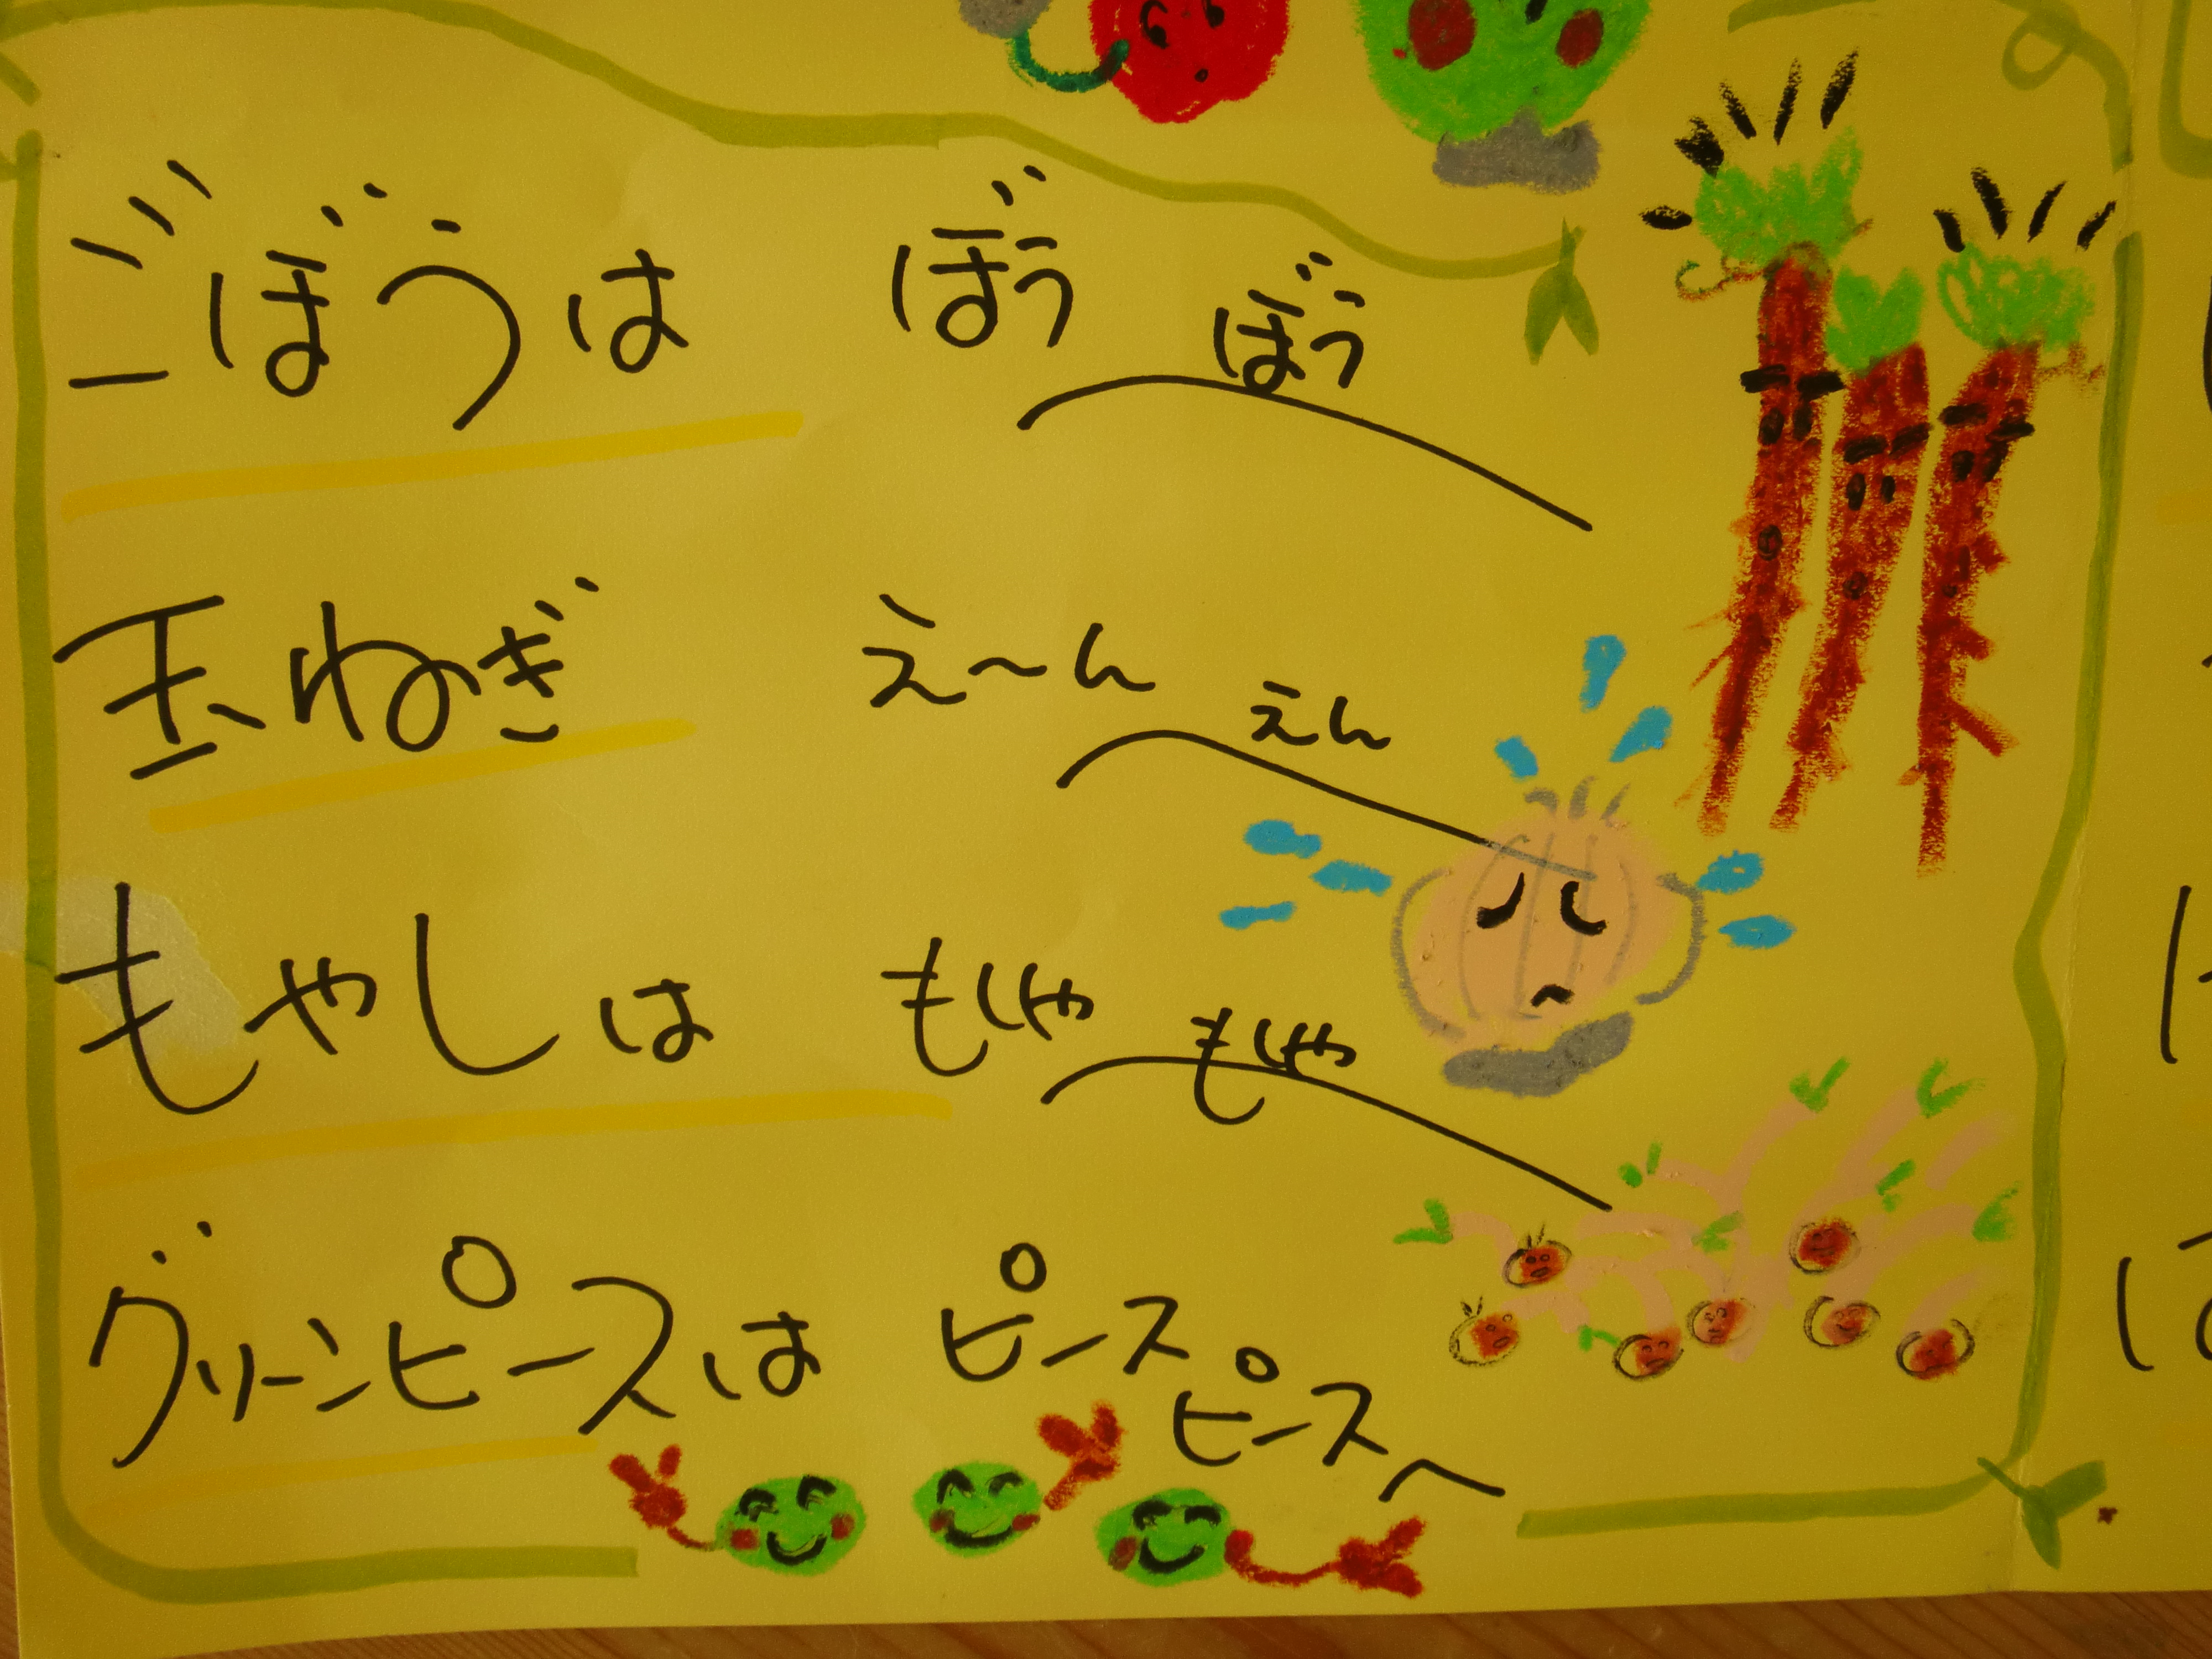 ごぼうは ぼう ぼう
玉ねぎ え〜ん えん
もやしは もしゃ もしゃ
グリーンピースは ピース ピース